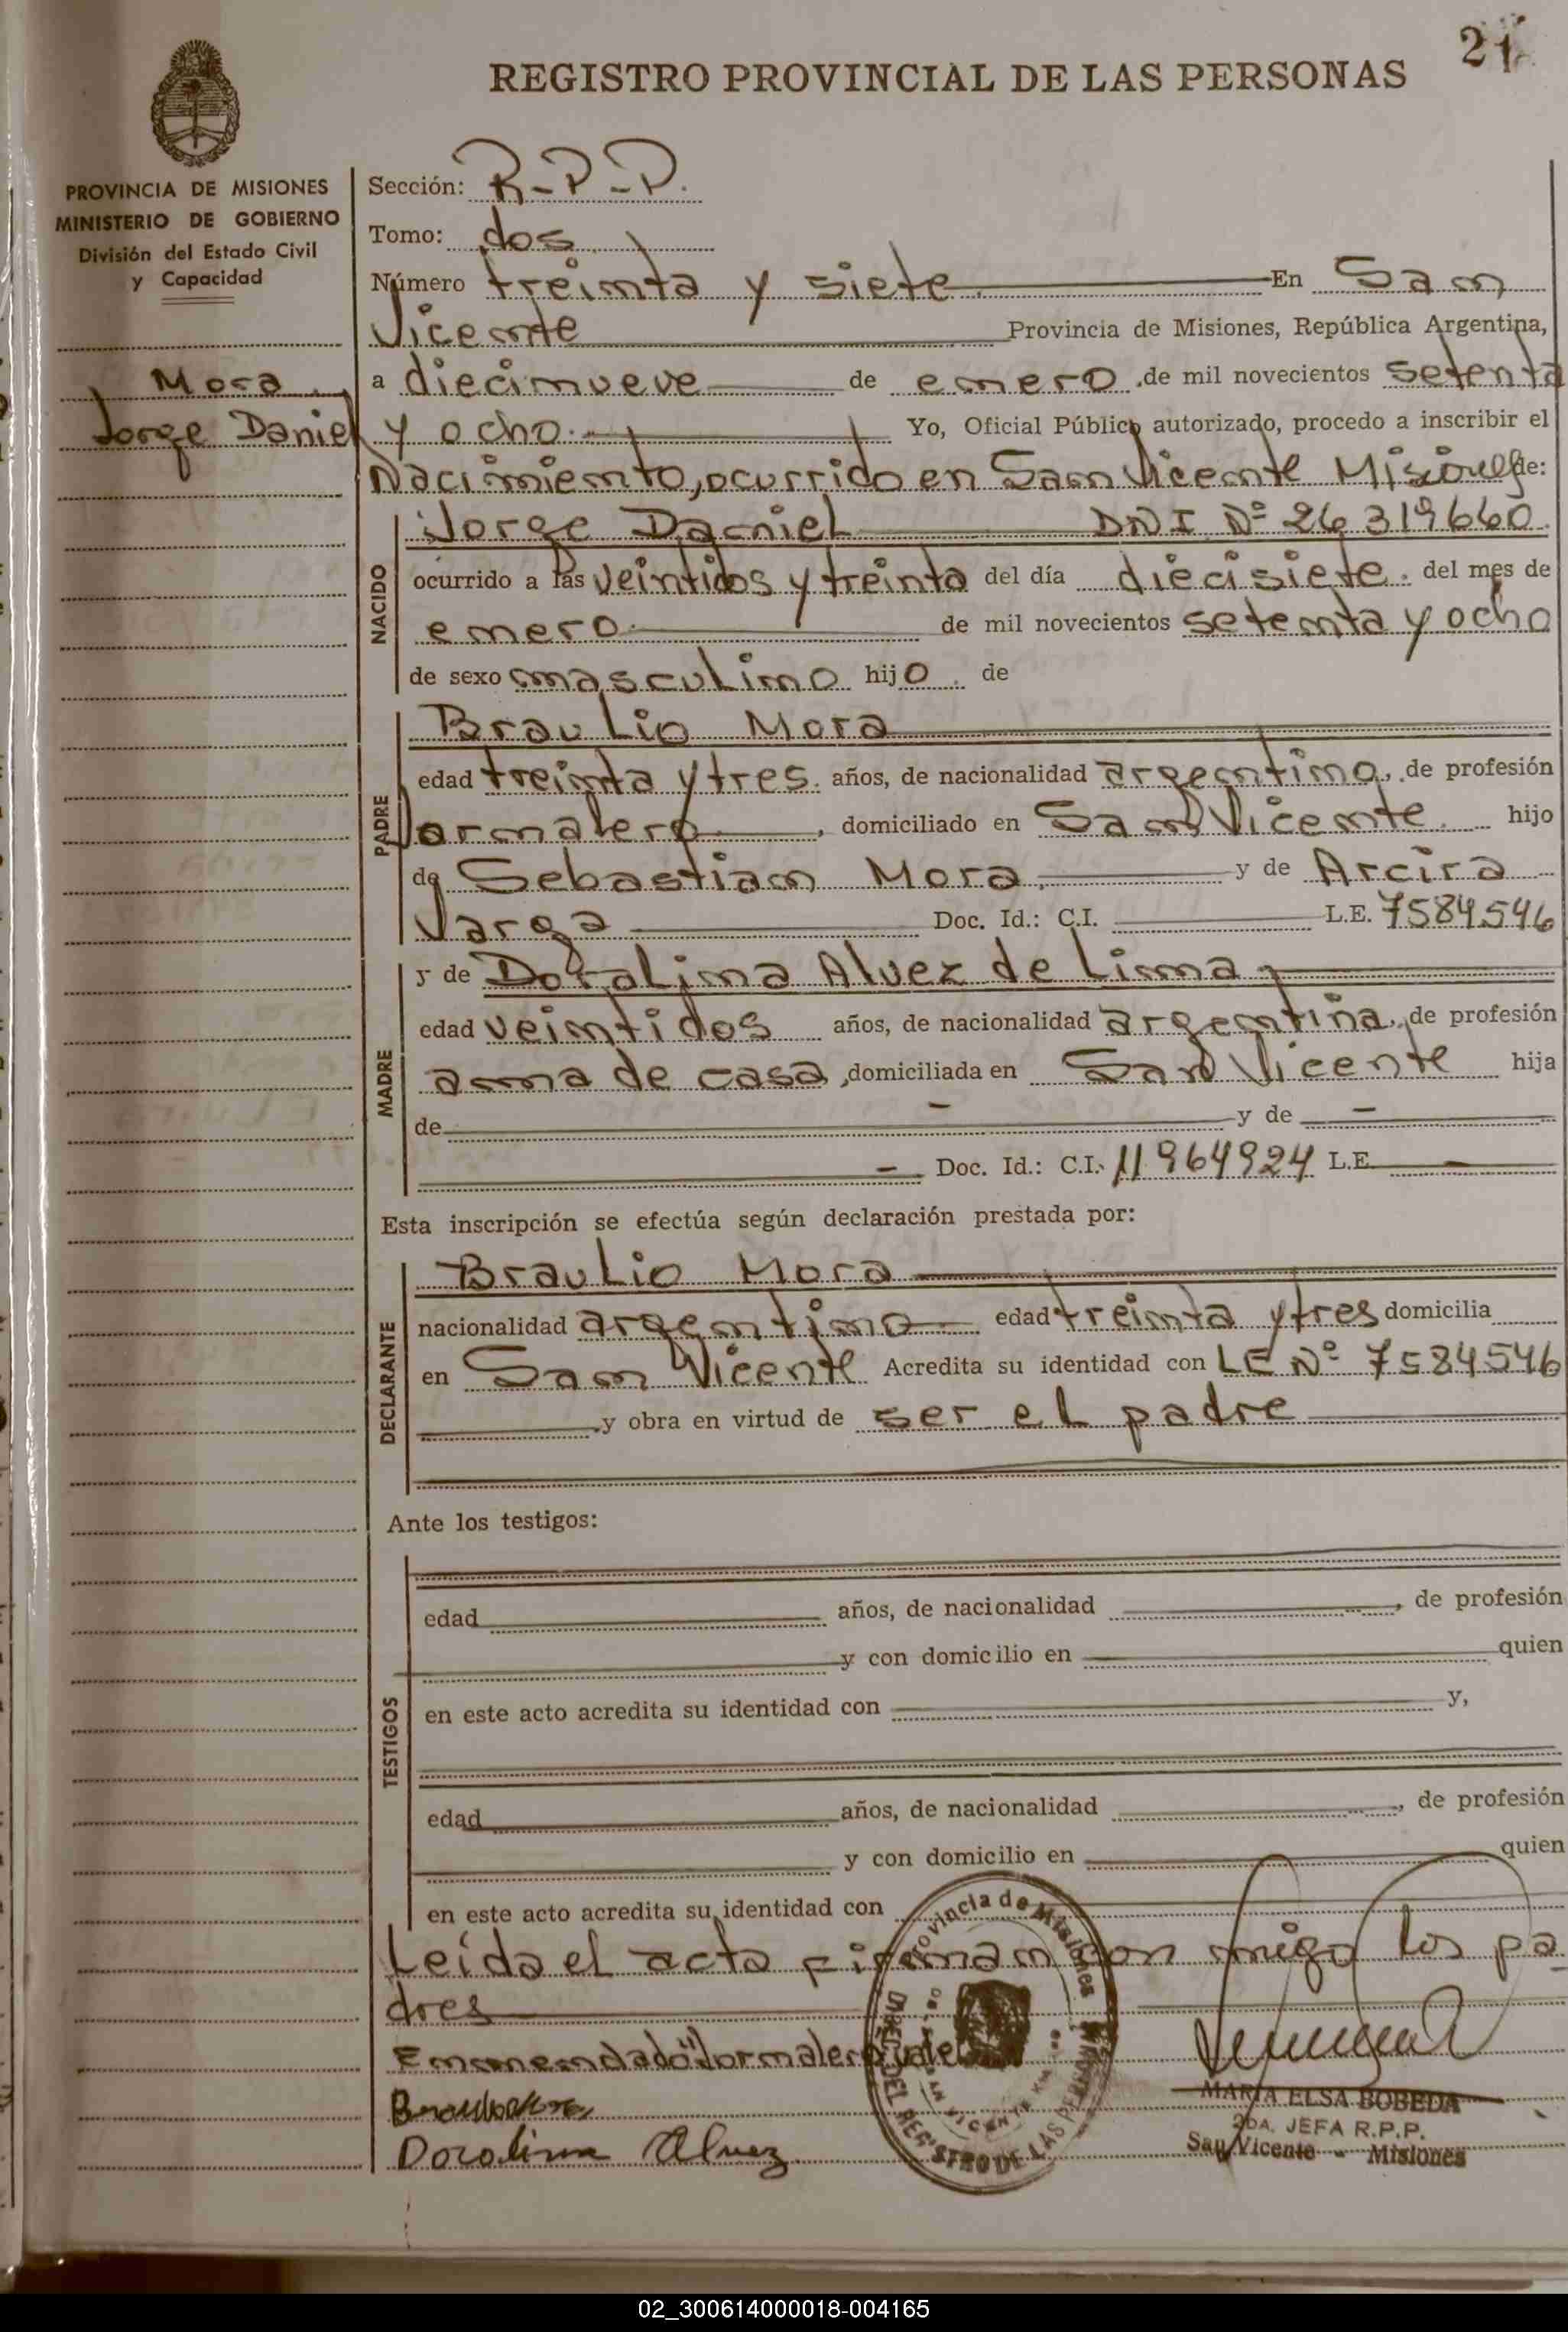 21
REGISTRO PROVINCIAL DE LAS PERSONAS
PROVINCIA DE MISIONES
MINISTERIO DE GOBIERNO
División del Estado Civil
y Capacidad
Mora
Jorge Daniel
Sección: R-P-P.
Tomo: dos
Número treinta y siete En San
Vicente Provincia de Misiones, República Argentina,
a diecinueve de enero de mil novecientos setenta
y ocho. Yo, Oficial Público autorizado, procedo a inscribir el
Nacimiento, ocurrido en San Vicente Misiones de:
NACIDO
Jorge Daniel DNI Nº 26 319660
ocurrido a las veintidos y treinta del día diecisiete. del mes de
enero. de mil novecientos setenta y ocho
de sexo masculino hijo. de
PADRE
Braulio Mora
edad treinta y tres. años, de nacionalidad argentino, de profesión
Jornalero, domiciliado en San Vicente. hijo
de Sebastian Mora. y de Arcira
Varga Doc. Id.: C.I. L.E. 7584546
MADRE
y de Doralina Alvez de Lima
edad veintidos años, de nacionalidad argentina, de profesión
ama de casa, domiciliada en San Vicente hija
de - y de -
- Doc. Id.: C.I. 11964924 L.E. -
Esta inscripción se efectúa según declaración prestada por:
DECLARANTE
Braulio Mora
nacionalidad argentino edad treinta y tres domicilia
en San Vicente Acredita su identidad con LE Nº 7584546
y obra en virtud de ser el padre
Ante los testigos:
TESTIGOS
edad años, de nacionalidad , de profesión
y con domicilio en quien
en este acto acredita su identidad con y,
edad años, de nacionalidad , de profesión
y con domicilio en quien
en este acto acredita su identidad con
Leida el acta firman con migo los pa
dres
Enmendado "Jornalero" vale
Provincia de Misiones
DEL REGISTRO DE LAS PERSONAS
SAN VICENTE
Dorolina Alvez
MARIA ELSA BOBEDA
2DA. JEFA R.P.P.
San Vicente - Misiones
02_300614000018-004165